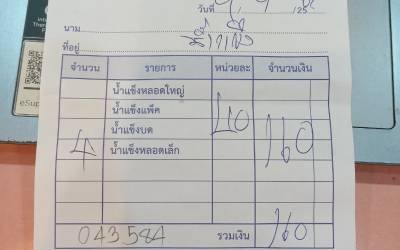 วันที่ 9/9/25
นาม
ที่อยู่
จำนวน รายการ หน่วยละ จำนวนเงิน
น้ำแข็งหลอดใหญ่
น้ำแข็งแพ็ค
น้ำแข็งบด
4 น้ำแข็งหลอดเล็ก 40 160
043584 รวมเงิน 160
eSup